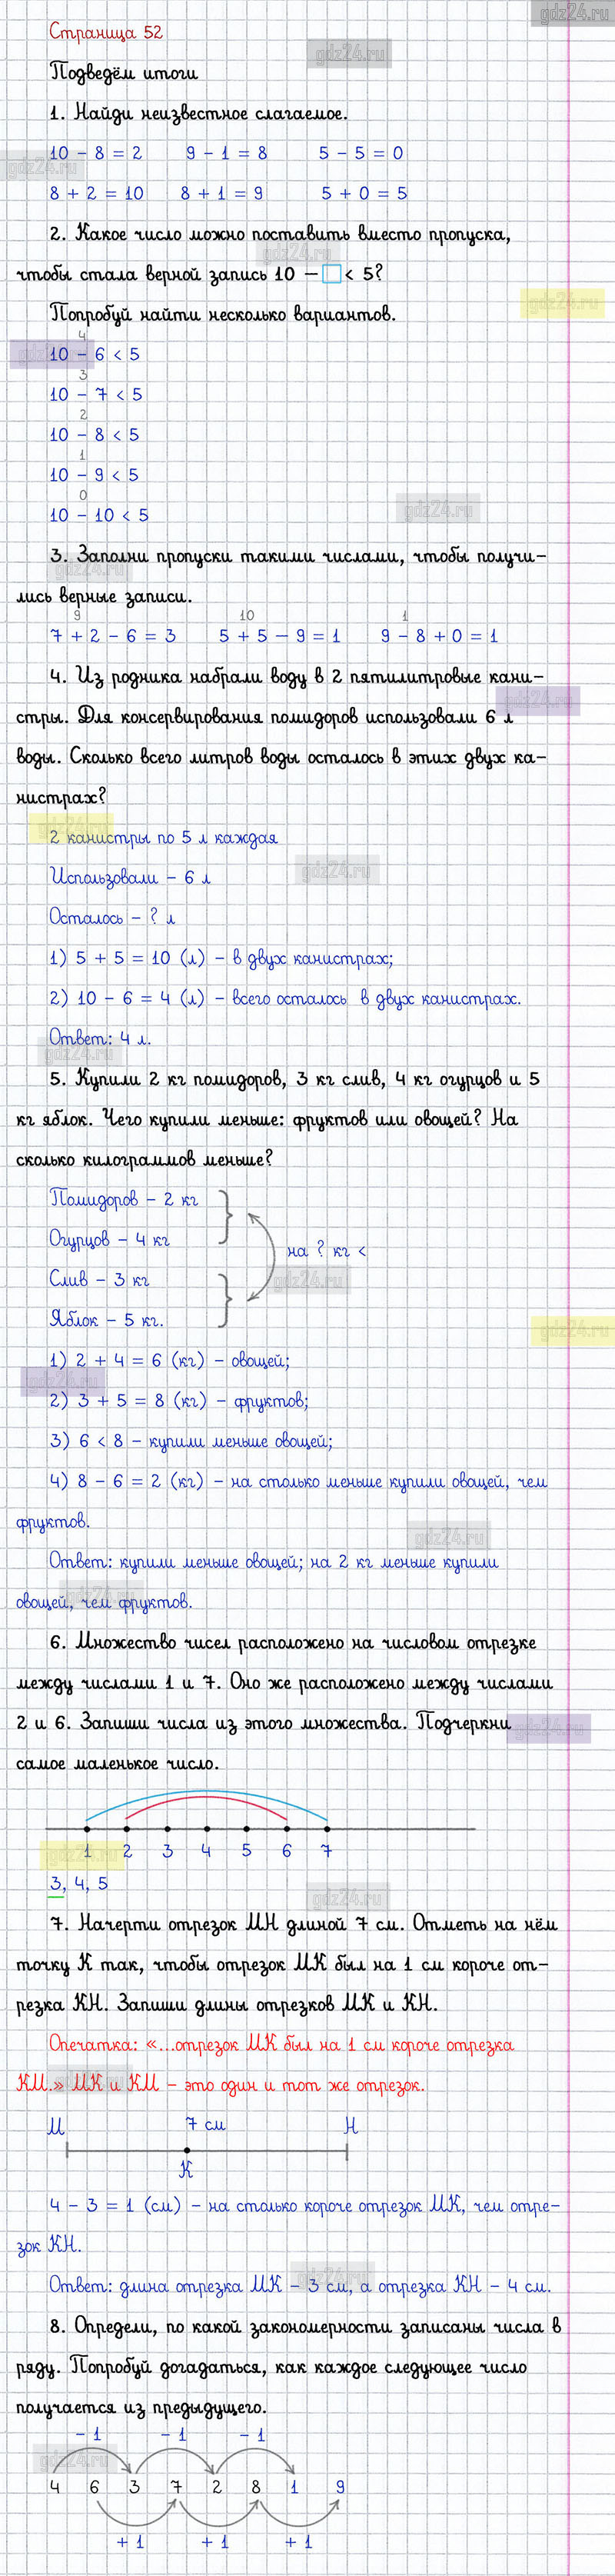 gdz24.ru
Страница 52
Подведём итоги
1. Найди неизвестное слагаемое.
10 - 8 = 2 9 - 1 = 8 5 - 5 = 0
8 + 2 = 10 8 + 1 = 9 5 + 0 = 5
2. Какое число можно поставить вместо пропуска,
чтобы стала верной запись 10 - □ < 5?
Попробуй найти несколько вариантов.
4
10 - 6 < 5
3
10 - 7 < 5
2
10 - 8 < 5
1
10 - 9 < 5
0
10 - 10 < 5
3. Заполни пропуски такими числами, чтобы получи-
лись верные записи.
9 10 1
7 + 2 - 6 = 3 5 + 5 - 9 = 1 9 - 8 + 0 = 1
4. Из родника набрали воду в 2 пятилитровые кани-
стры. Для консервирования помидоров использовали 6 л
воды. Сколько всего литров воды осталось в этих двух ка-
нистрах?
2 канистры по 5 л каждая
Использовали - 6 л
Осталось - ? л
1) 5 + 5 = 10 (л) - в двух канистрах;
2) 10 - 6 = 4 (л) - всего осталось в двух канистрах.
Ответ: 4 л.
5. Купили 2 кг помидоров, 3 кг слив, 4 кг огурцов и 5
кг яблок. Чего купили меньше: фруктов или овощей? На
сколько килограммов меньше?
Помидоров - 2 кг
Огурцов - 4 кг
на ? кг <
Слив - 3 кг
Яблок - 5 кг.
1) 2 + 4 = 6 (кг) - овощей;
2) 3 + 5 = 8 (кг) - фруктов;
3) 6 < 8 - купили меньше овощей;
4) 8 - 6 = 2 (кг) - на столько меньше купили овощей, чем
фруктов.
Ответ: купили меньше овощей; на 2 кг меньше купили
овощей, чем фруктов.
6. Множество чисел расположено на числовом отрезке
между числами 1 и 7. Оно же расположено между числами
2 и 6. Запиши числа из этого множества. Подчеркни
самое маленькое число.
1 2 3 4 5 6 7
3, 4, 5
7. Начерти отрезок МН длиной 7 см. Отметь на нём
точку К так, чтобы отрезок МК был на 1 см короче от-
резка КН. Запиши длины отрезков МК и КН.
Опечатка: «...отрезок МК был на 1 см короче отрезка
КМ.» МК и КМ - это один и тот же отрезок.
М 7 см Н
К
4 - 3 = 1 (см) - на столько короче отрезок МК, чем отре-
зок КН.
Ответ: длина отрезка МК - 3 см, а отрезка КН - 4 см.
8. Определи, по какой закономерности записаны числа в
ряду. Попробуй догадаться, как каждое следующее число
получается из предыдущего.
- 1 - 1 - 1
4 6 3 7 2 8 1 9
+ 1 + 1 + 1